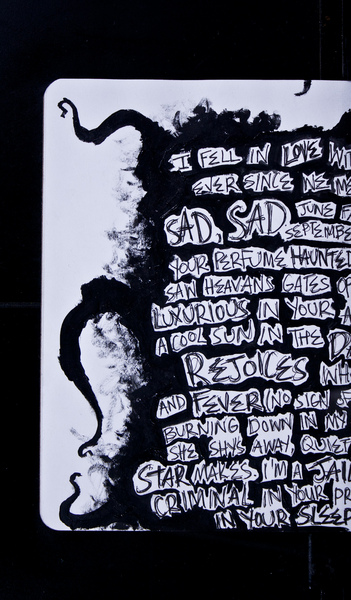 I FELL IN LOVE WI
EVER SINCE WE ME
SAD, SAD, JUNE F
SEPTEMBE
YOUR PERFUME HAUNTED
SAW HEAVEN'S GATES OF
LUXURIOUS IN YOUR A
A COOL SUN IN THE D
REJOICES WH
AND FEVER (NO SIGN OF
BURNING DOWN IN MY
SHE SHYS AWAY, QUIET
STAR MAKES. I'M A JAIL
CRIMINAL IN YOUR PR
IN YOUR SLEEP